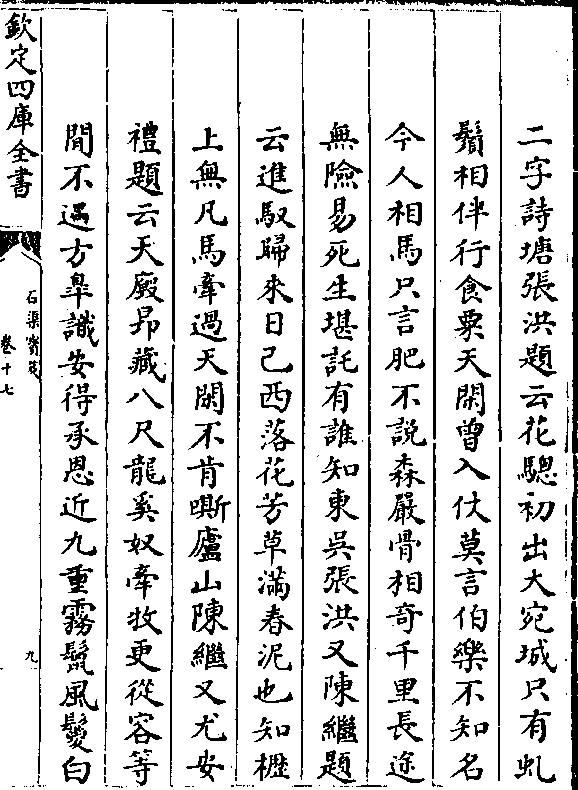 二字詩塘張洪題云花驄初出大宛城只有虬
鬚相伴行食粟天閑曾入仗莫言伯樂不知名
今人相馬只言肥不說森嚴骨相奇千里長途
無險易死生堪託有誰知東吳張洪又陳繼題
云進馭歸來日已西落花芳草滿春泥也知櫪
上無凡馬牽過天閑不肯嘶廬山陳繼又尤安
禮題云天廐昂藏八尺龍奚奴牽牧更從容等
閒不遇方臯識安得承恩近九重霧鬛風鬉白
欽定四庫全書
石渠寶笈
卷十七
九